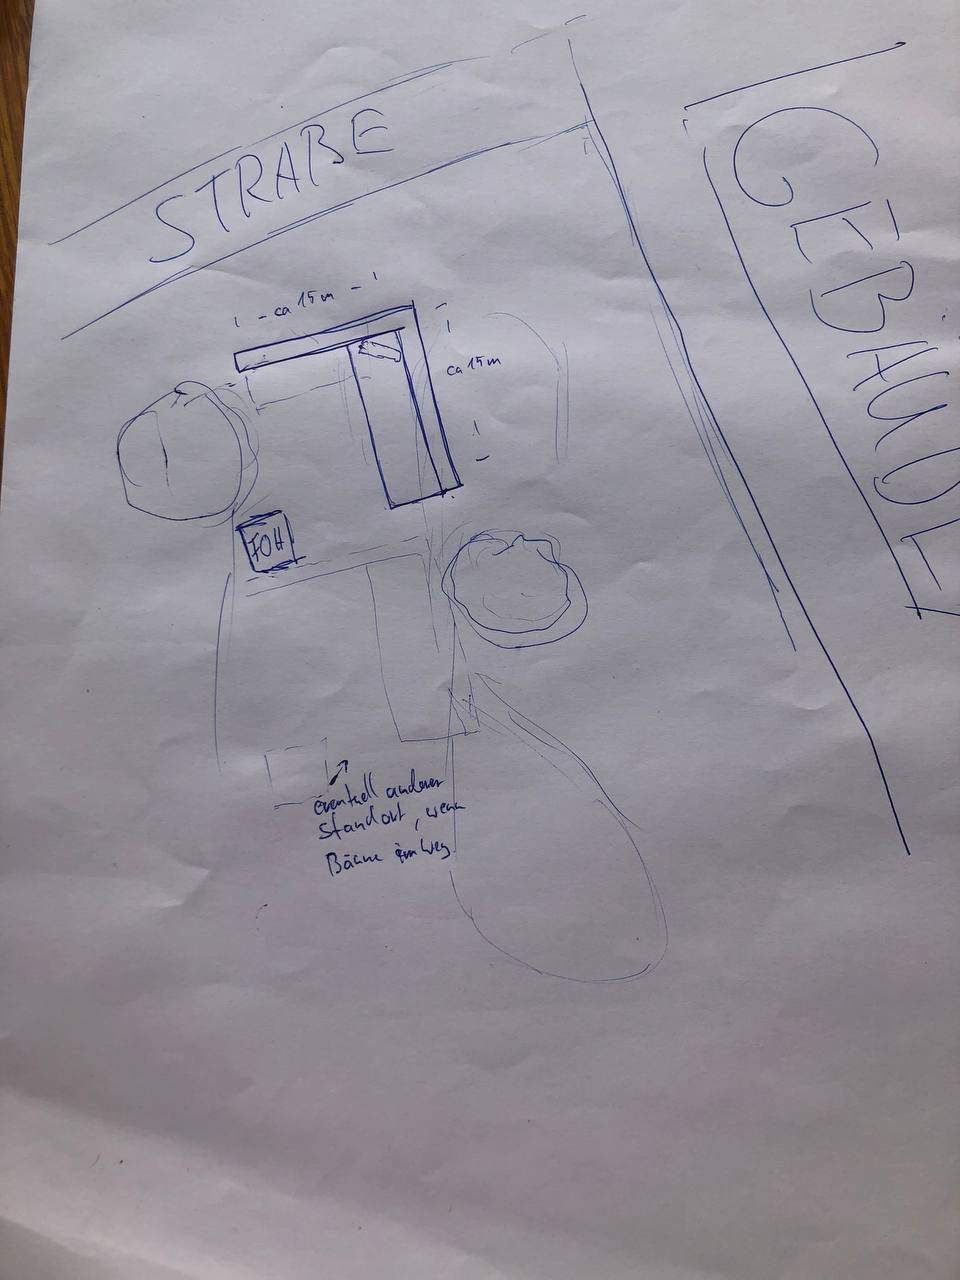 STRAßE
GEBÄUDE
ca 15m
ca 15m
FOH
eventuell anderer
Standort, wenn
Bäume im Weg